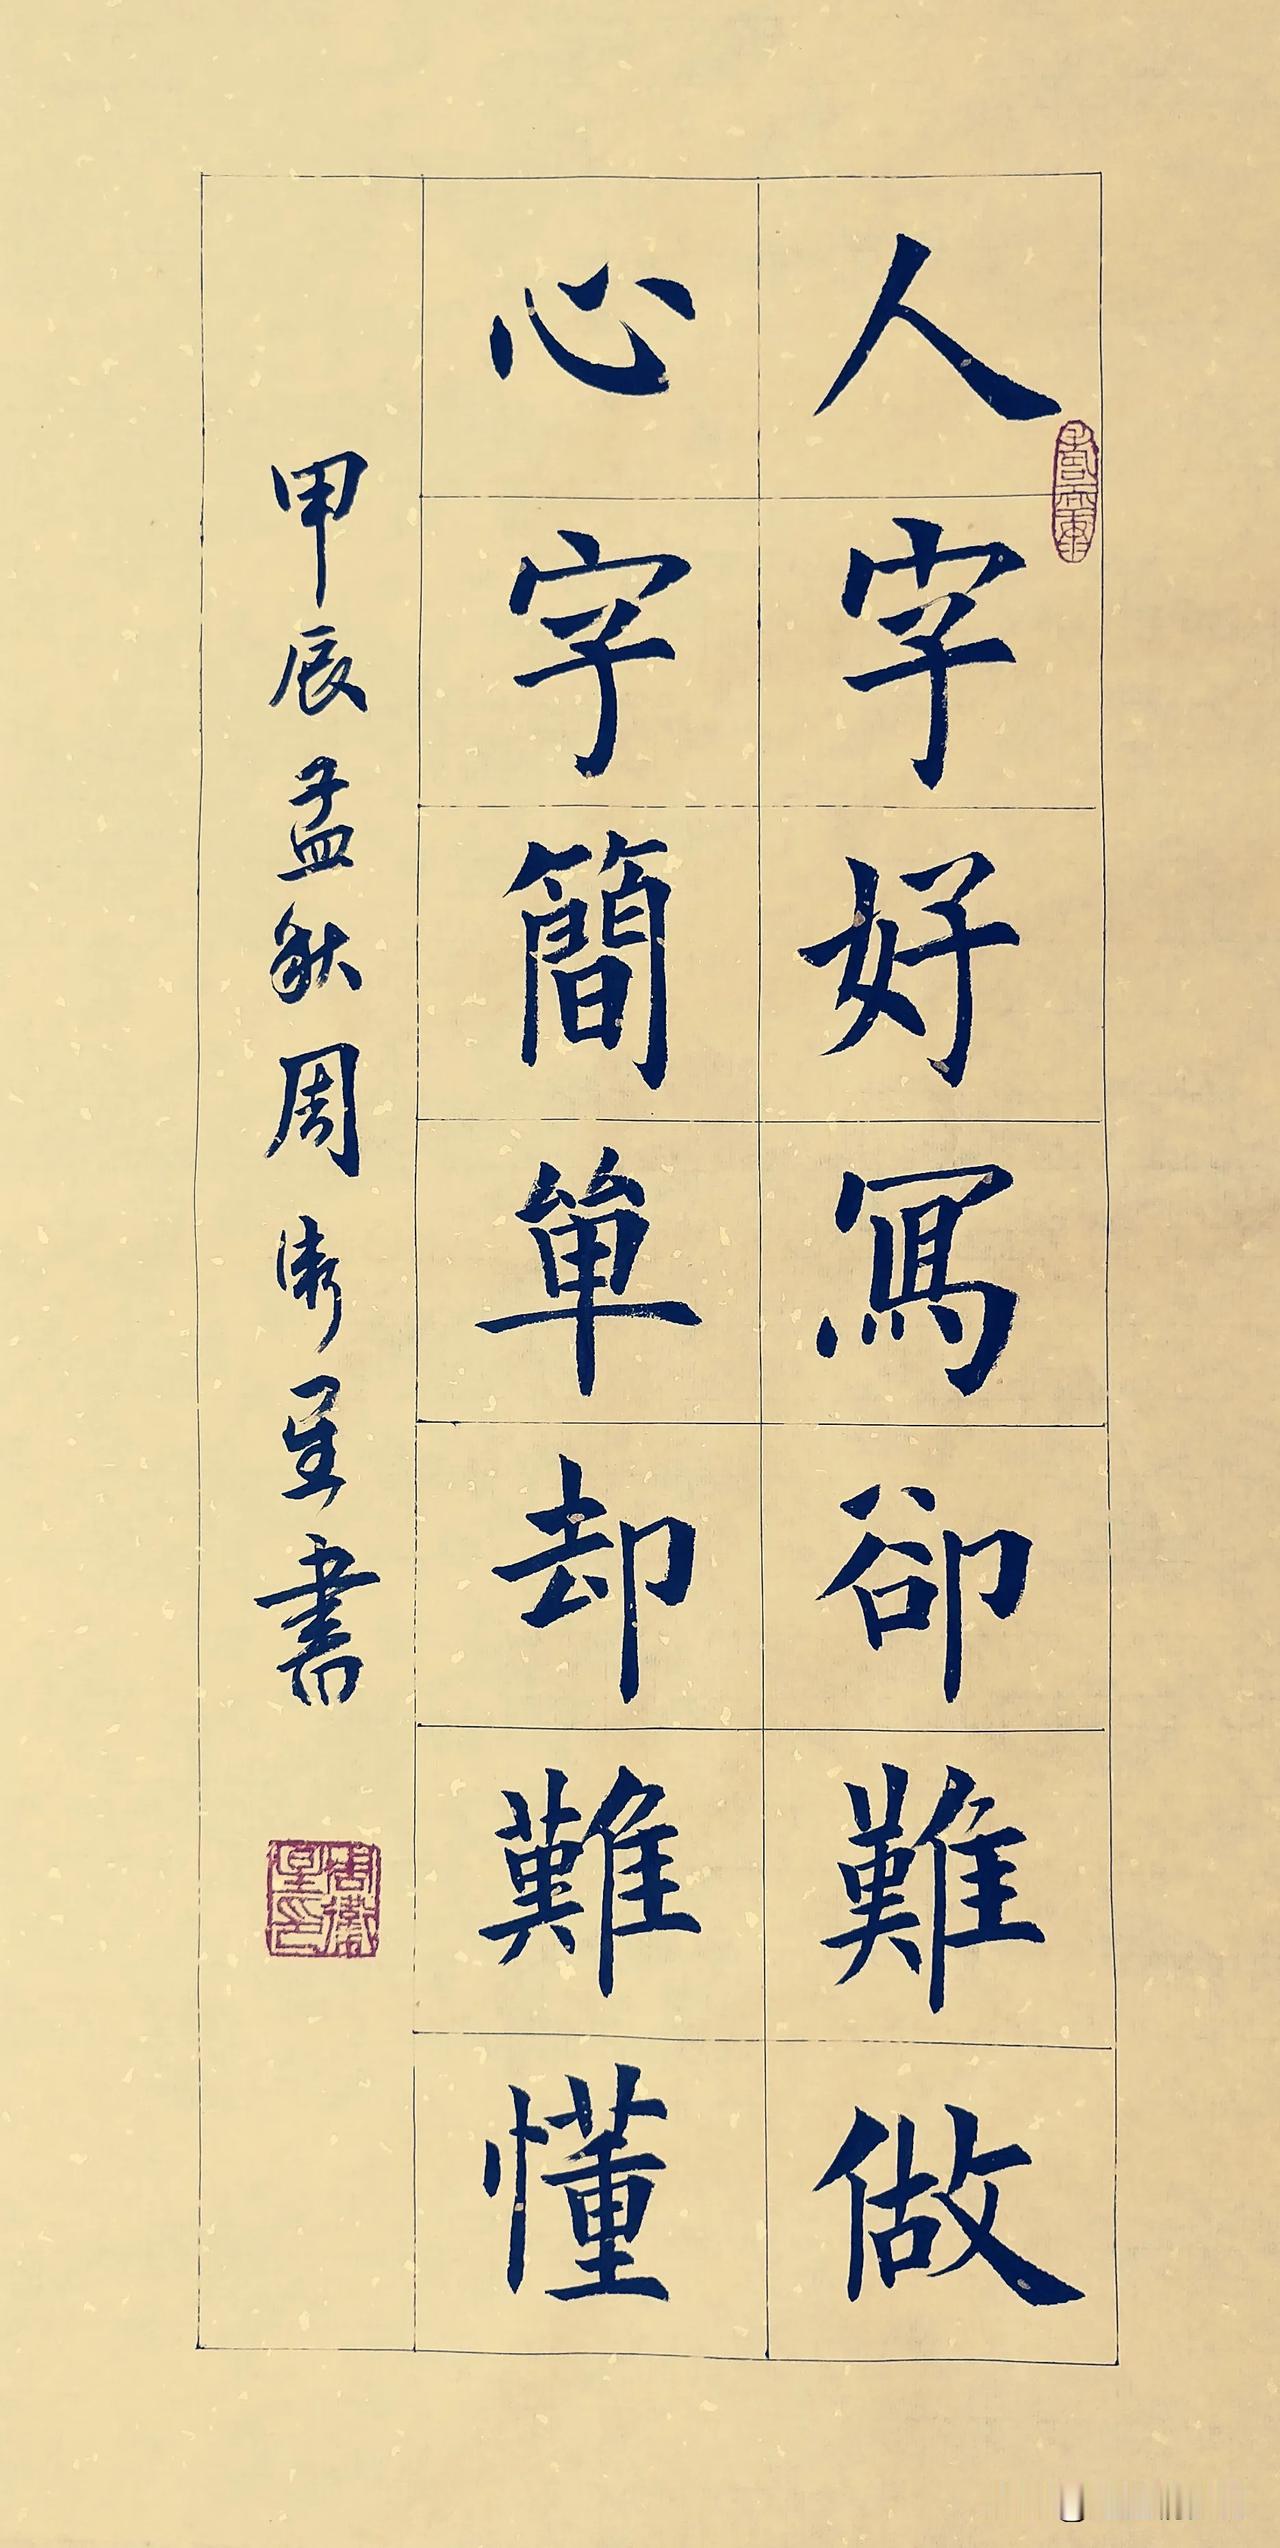 人字好寫卻難做
心字簡單却難懂
甲辰孟秋周衛星書